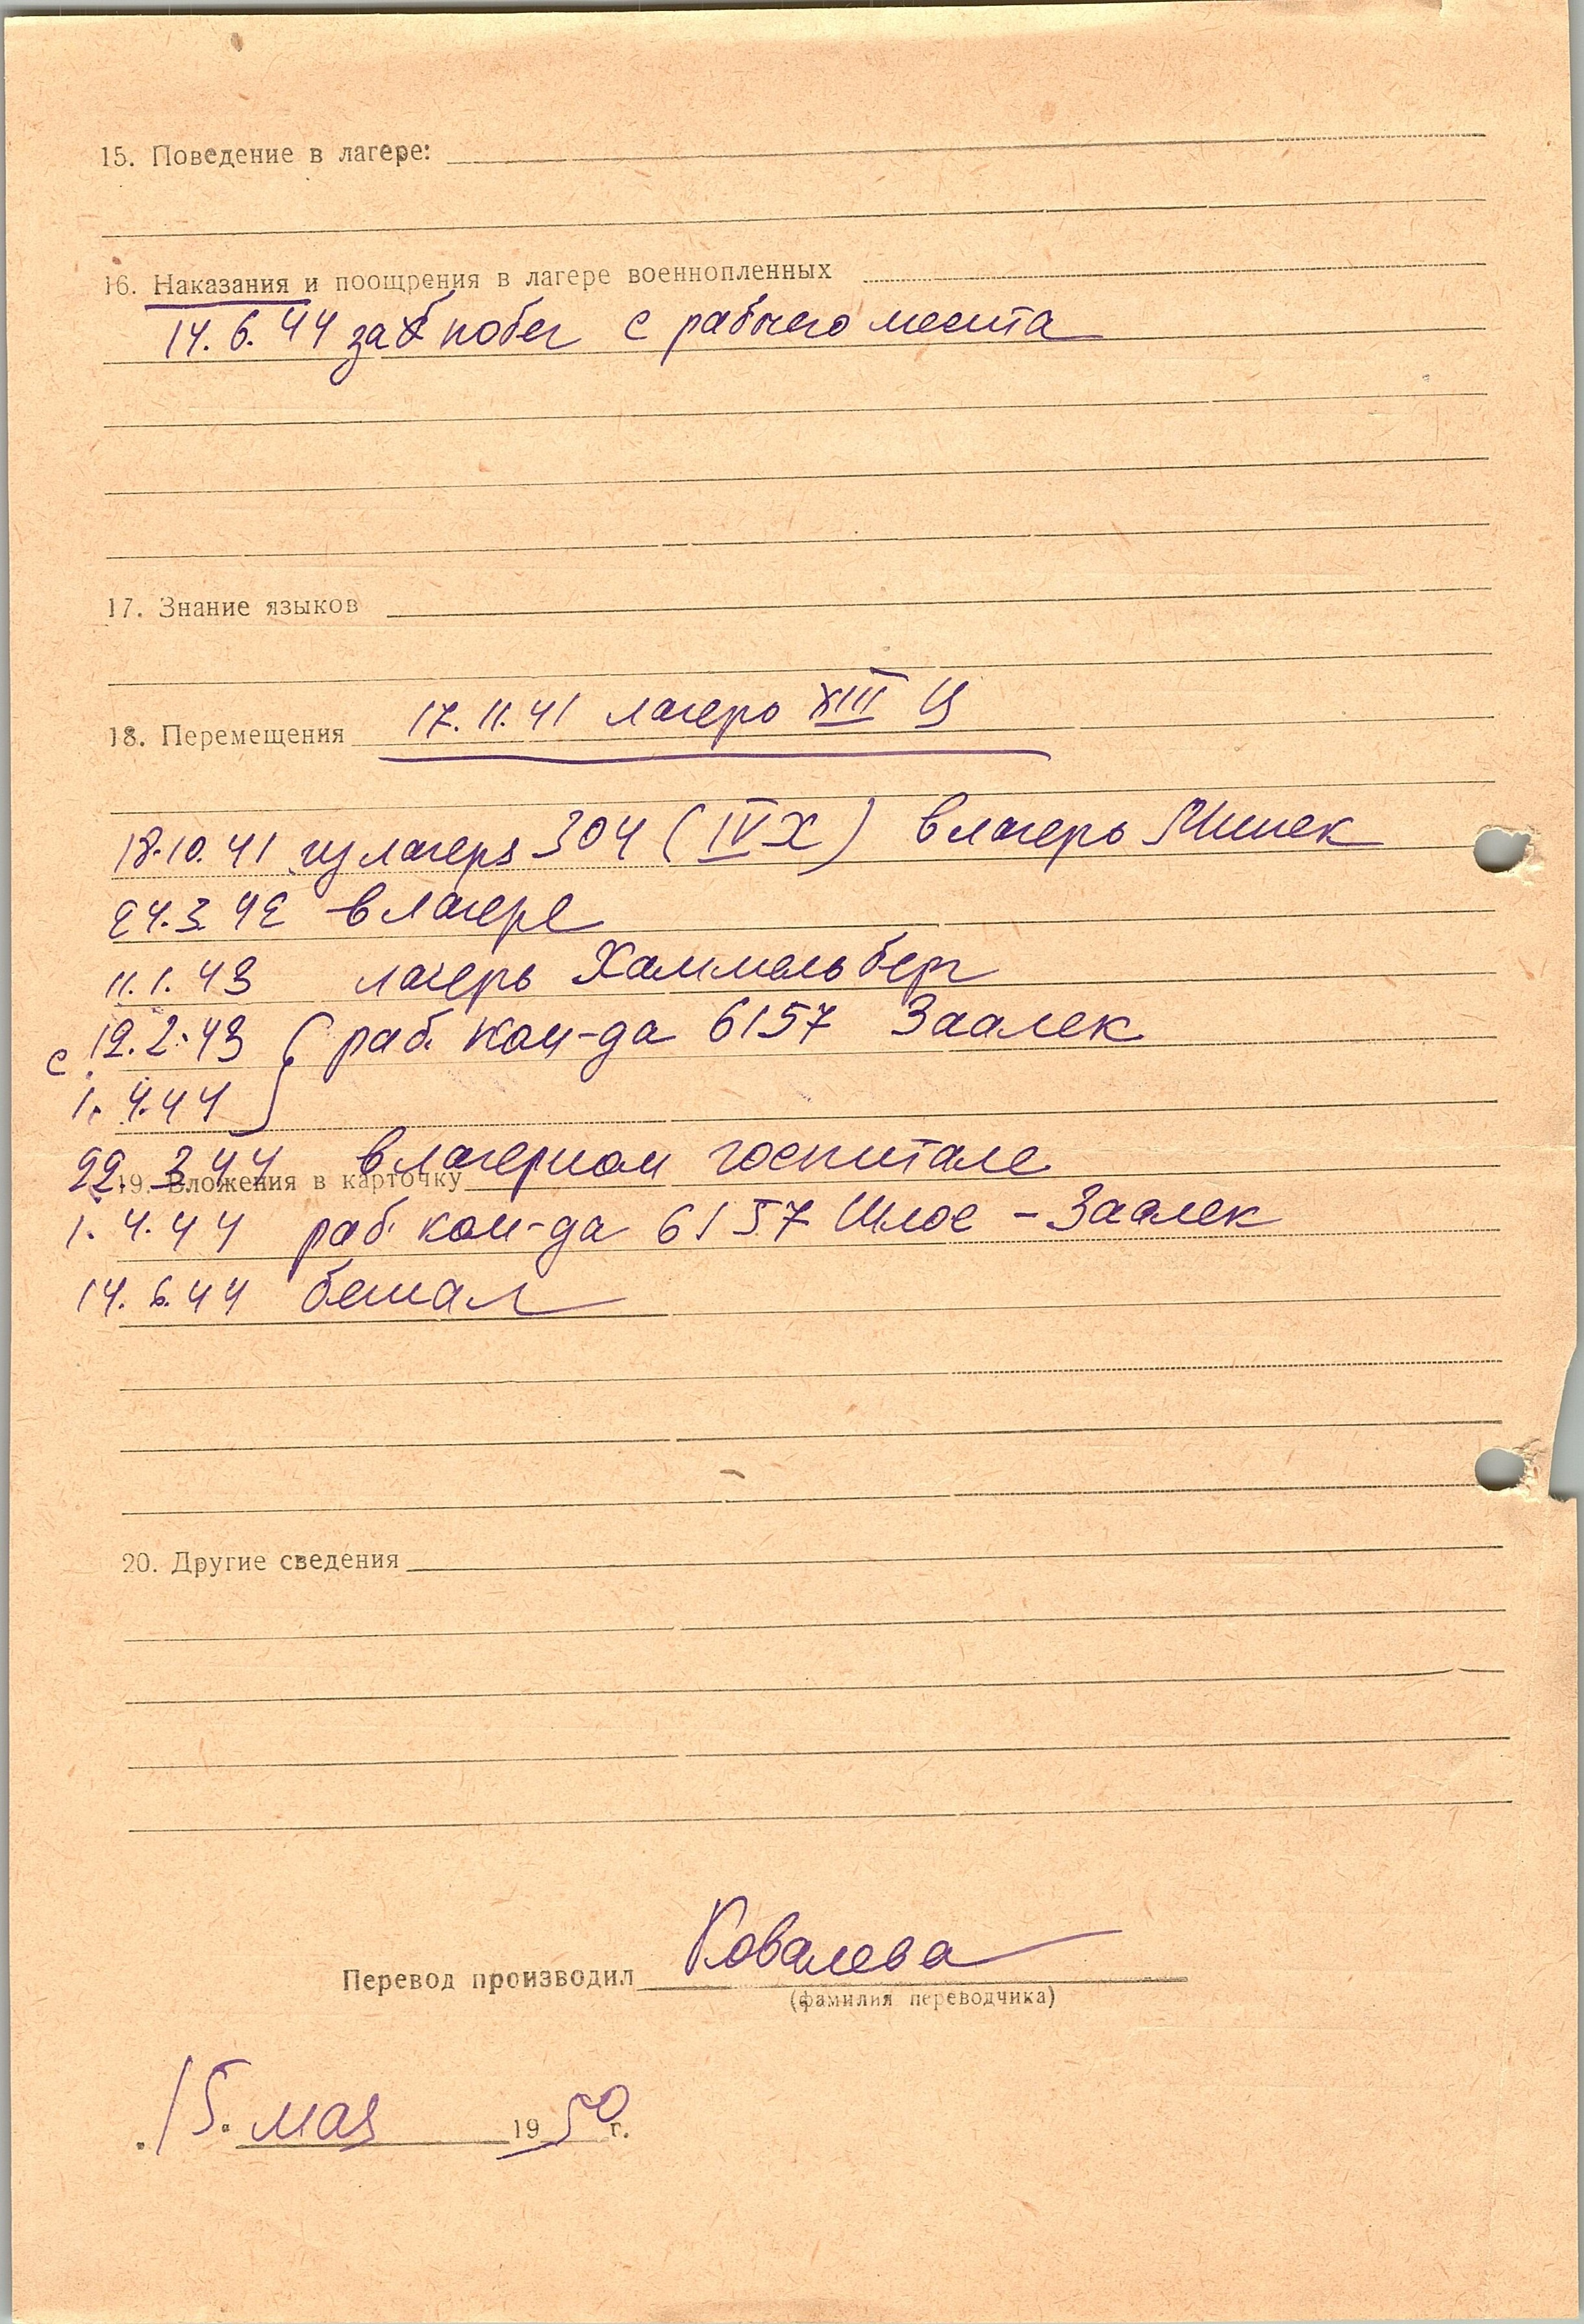 15. Поведение в лагере:
16. Наказания и поощрения в лагере военнопленных
14.6.44 за побег с рабочего места
17. Знание языков
18. Перемещения 17.11.41 лагерь XIII Ц
18.10.41 из лагеря 304 (IV Х) в лагерь
24.3.42 в лагере
11.1.43 лагерь Хаммельберг
с 12.2.43 раб. ком-да 6157 Заалек
1.4.44
22.3.44 в лагерном госпитале
19. Вложения в карточку
1.4.44 раб. ком-да 6157 Шлос-Заалек
14.6.44 бежал
20. Другие сведения
Перевод производил Ковалева
(фамилия переводчика)
15. мая 1950 г.